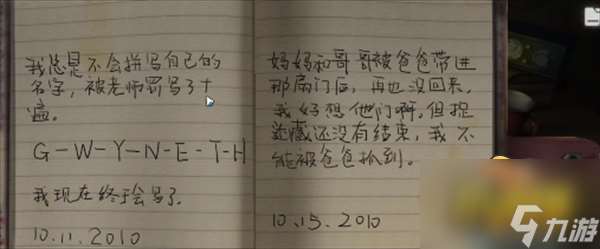 我总是不会拼写自己的
名字，被老师罚写了十
遍。
G-W-Y-N-E-T-H
我现在终于会写了。
10.11.2010
妈妈和哥哥被爸爸带进
那扇门后，再也没回来。
我好想他们啊。但捉
迷藏还没有结束，我不
能被爸爸抓到。
10.15.2010
九游